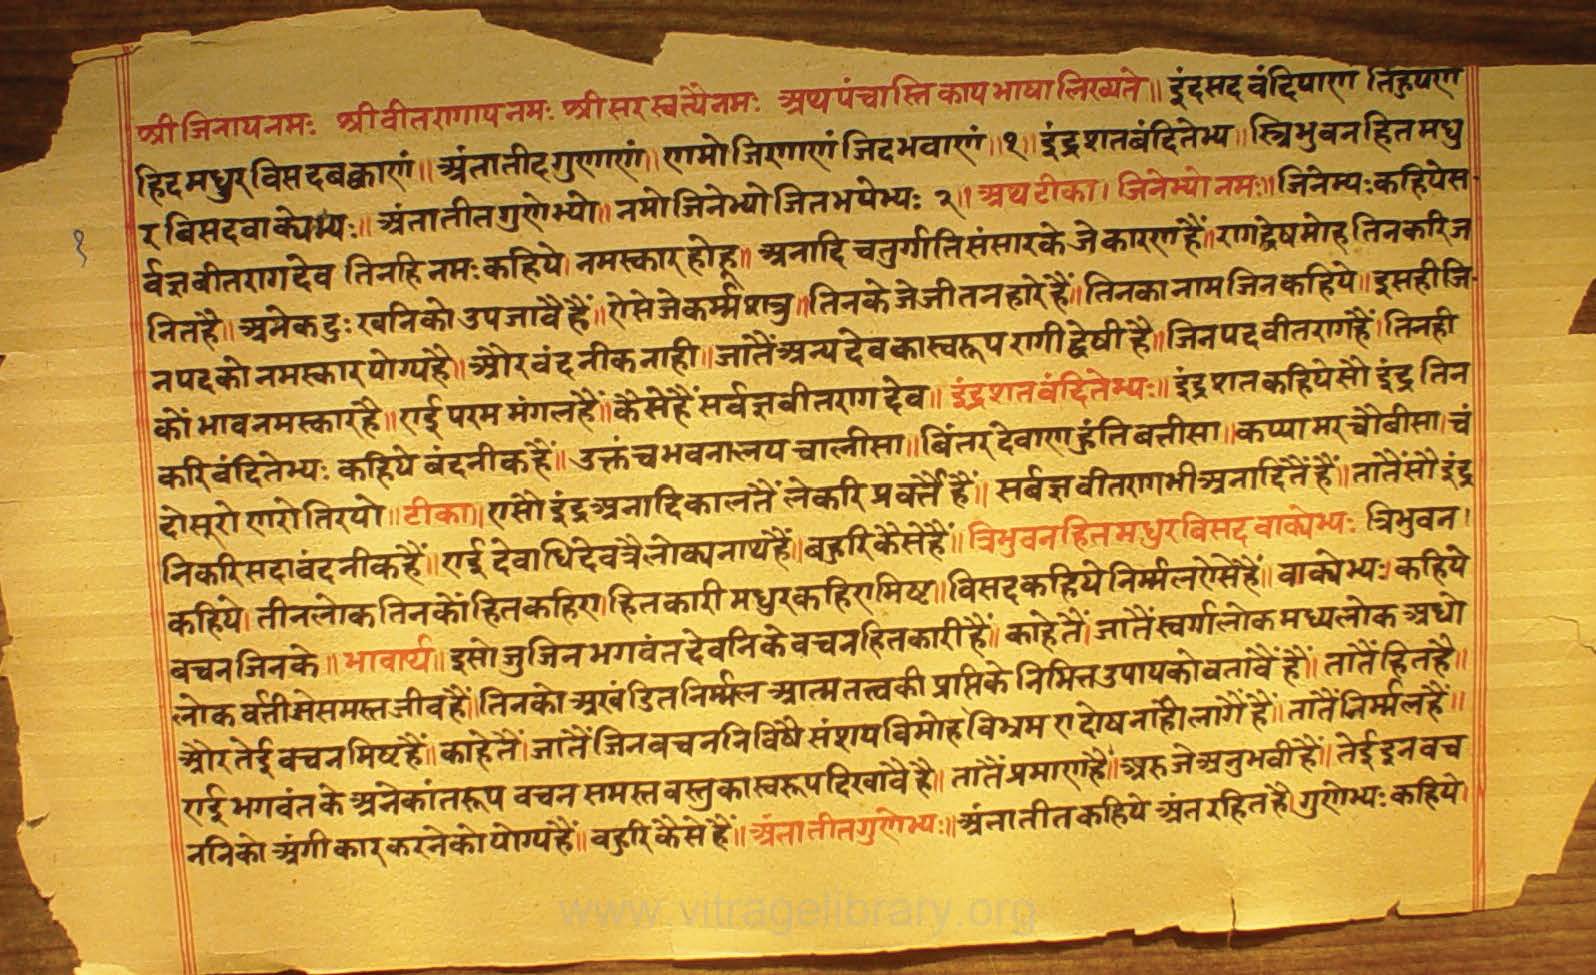 श्रीजिनायनमः श्रीवीतरागायनमः श्रीसरस्वत्यैनमः अथपंचास्तिकायभाषालिख्यते॥ इंदसदवंदियाणं तिहुयण
हिदमधुरविसदबक्काणं॥ अंतातीदगुणाणं॥ णमो जिणाणं जिदभवाणं॥१॥ इंद्रशतबंदितेभ्य॥ स्त्रिभुवनहितमधु
रविसदवाक्येभ्यः॥ अंतातीतगुणेभ्यो॥ नमोजिनेभ्योजितभयेभ्यः २॥ अथटीका। जिनेभ्योनमः॥ जिनेभ्यःकहियेस
१
र्वज्ञवीतरागदेव तिनहि नमःकहिये। नमस्कारहोहू॥ अनादि चतुर्ग्गतिसंसारके जे कारणहैं॥ रागद्वेषमोह तिनकरिज
नितहै॥ अनेकदुःखनिको उपजावैहैं॥ ऐसेजेकर्म्मशत्रु॥ तिनकेजेजीतनहारेहैं॥ तिनकानामजिनकहिये॥ इसहीजि
नपदकोनमस्कारयोग्यहै॥ औरवंदनीकनाही॥ जातैंअन्यदेवकास्वरूपरागीद्वेषीहै॥ जिनपदवीतरागहैं। तिनही
कोंभावनमस्कारहै॥ एईपरममंगलहैं॥ कैसेहैंसर्वज्ञवीतरागदेव॥ इंद्रशतवंदितेभ्यः॥ इंद्रशतकहियेसौ इंद्र तिन
करिवंदितेभ्यः कहिये बंदनीकहैं॥ उक्तंचभवनालयचालीसा॥ बिंतरदेवाणहुंतिबत्तीसा॥ कप्पामरचौबीसा। चं
दोसूरोणरोतिरयो॥ टीका॥ एसौइंद्रअनादिकालतैंलेकरिप्रवर्त्तैंहैं॥ सर्बज्ञवीतरागभीअनादितैंहैं॥ तातैंसौइंद्र
निकरिसदावंदनीकहैं॥ एईदेवाधिदेवत्रैलोक्यनाथहैं॥ बहुरिकैसेहैं॥ त्रिभुवनहितमधुरविसदवाक्येभ्यः त्रिभुवन।
कहिये। तीनलोकतिनकोंहितकहिए। हितकारीमधुरकहिएमिष्ट॥ विसदकहियेनिर्म्मलऐसेहैं॥ वाक्येभ्यः। कहिये
बचनजिनके॥ भावार्थ॥ इसोजुजिनभगवंतदेवनिकेवचनहितकारीहैं॥ काहेतैं। जातैंस्वर्गालोकमध्यलोकअधो
लोकवर्त्तीजेसमस्तजीवहैं॥ तिनकोअखंडितनिर्म्मलआत्मतत्त्वकीप्राप्तिकेनिमित्तउपायकोवतावैंहैं॥ तातैंहितहै॥
औरतेईवचनमिष्टहैं॥ काहेतैं। जातैंजिनवचननिविषैसंशयविमोहविभ्रमएदोषनाहीलागैंहैं॥ तातैंनिर्म्मलहैं॥
एईभगवंतकेअनेकांतरूप वचनसमस्तवस्तुकास्वरूपदिखावैहै॥ तातैंप्रमाणहै॥ अरुजेअनुभवीहैं॥ तेईइनवच
ननिकोअंगीकारकरनेकोयोग्यहैं॥ बहुरिकैसेहैं॥ अंतातीतगुणेभ्यः॥ अंतातीतकहियेअंतरहितहै। गुणेभ्यःकहिये।
www.vitragelibrary.org